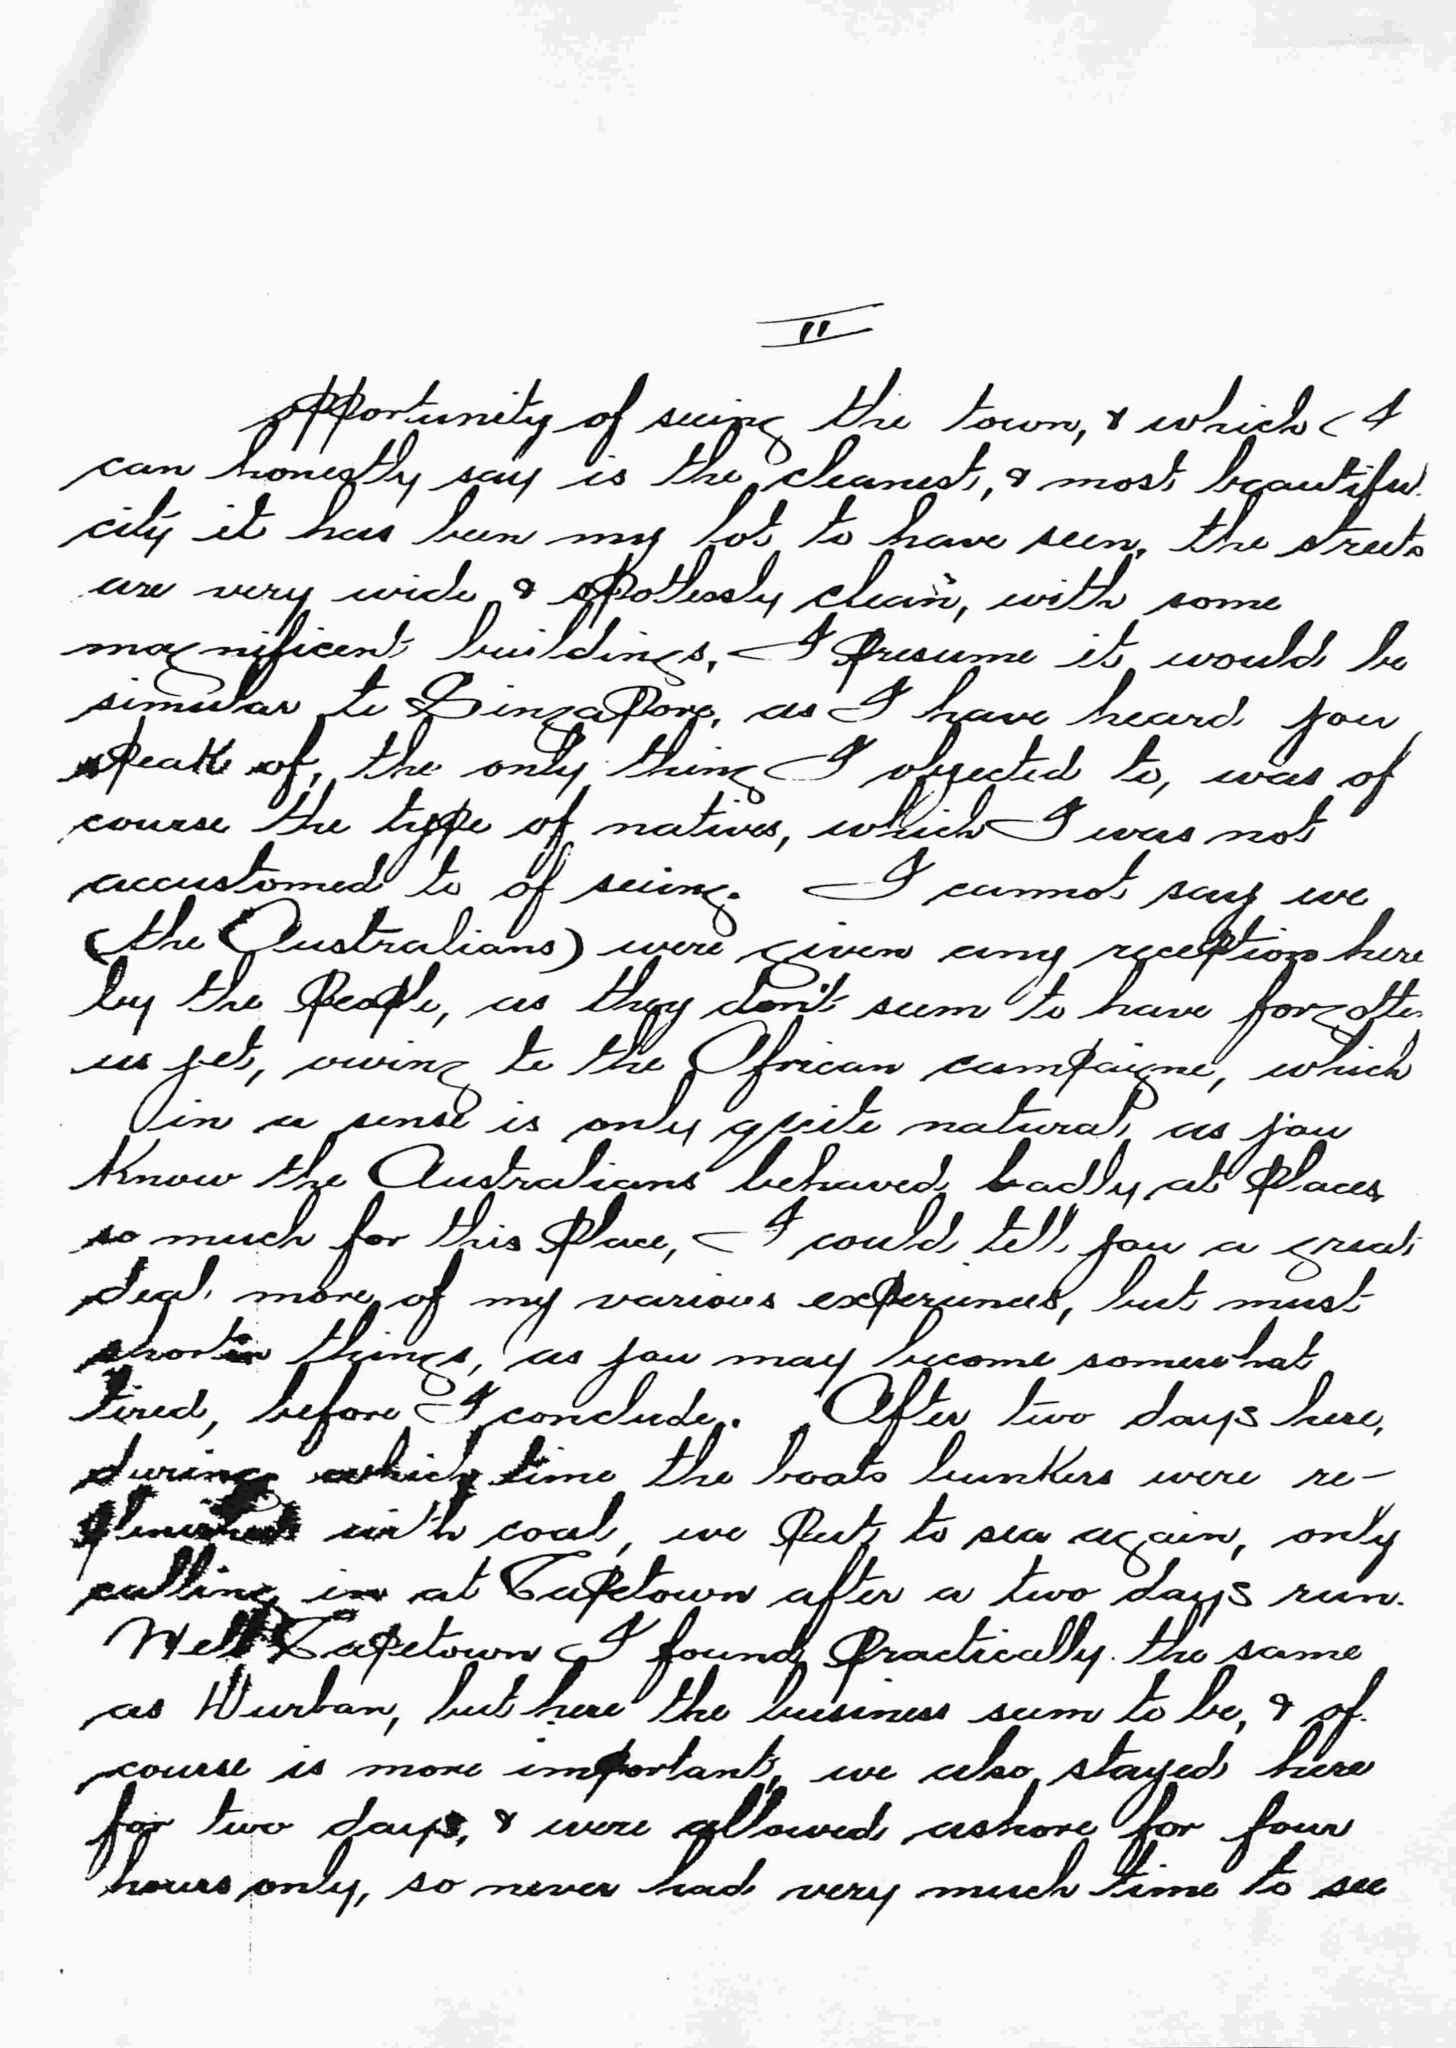 II
opportunity of seeing the town, & which I
can honestly say is the cleanest, & most beautiful
city it has been my lot to have seen, the streets
are very wide & spotlessly clean, with some
magnificent buildings, I presume it would be
simular to Singapore, as I have heard you
speak of, the only thing I objected to, was of
course the type of natives, which I was not
accustomed to of seeing. I cannot say we
(the Australians) were given any reception here
by the people, as they don't seem to have forgotten
us yet, owing to the African campaigne, which
in a sense is only quite natural, as you
know the Australians behaved badly at places
so much for this place, I could tell you a great
deal more of my various experiences, but must
shorten things, as you may become somewhat
tired, before I conclude. After two days here,
during which time the boats bunkers were re-
plenished with coal, we put to sea again, only
calling in at Capetown after a two days run.
Well Capetown I found practically the same
as Durban, but here the business seem to be, & of
course is more important, we also stayed here
for two days, & were allowed ashore for four
hours only, so never had very much time to see